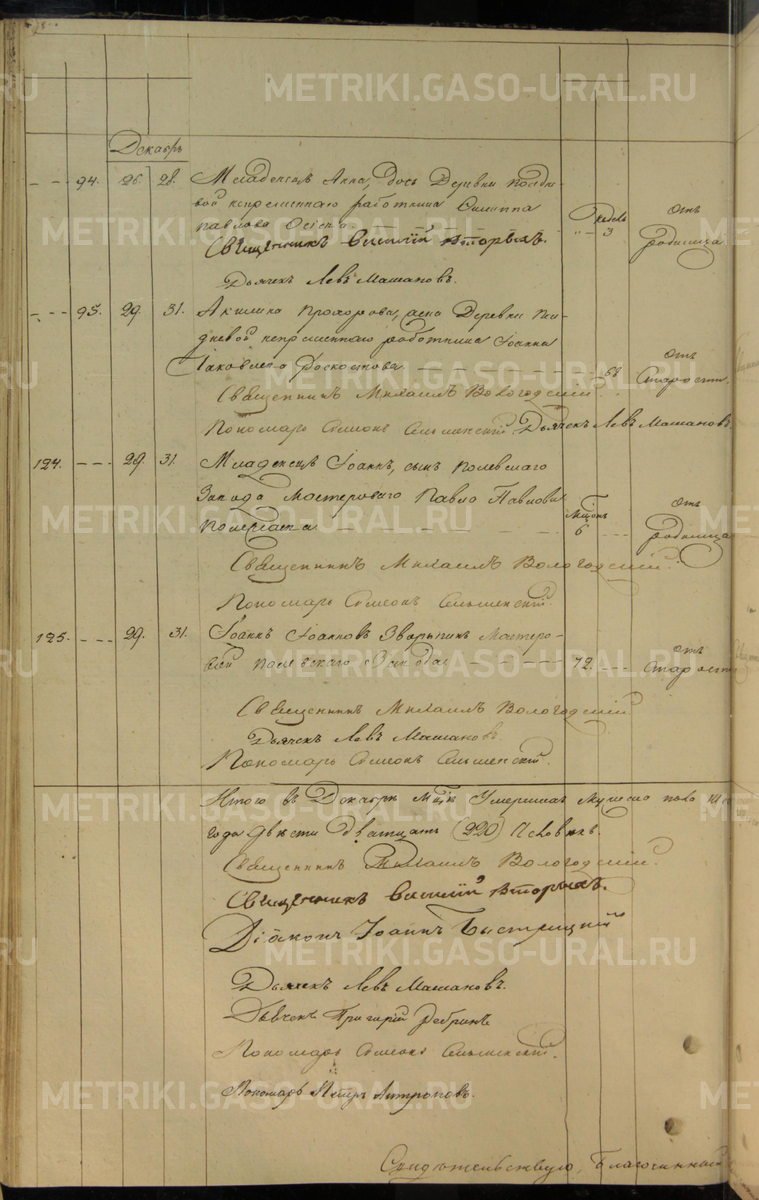 METRIKI.GASO-URAL.RU
Декабрь
94. 26. 28. Младенецъ Анна, дочь Деревни
непременнаго работника Филиппа
Павлова недель 3 отъ родимца
Священникъ Василій Вторыхъ.
Дьячекъ Левъ Машановъ.
95. 29. 31. Акилина Прохорова, жена Деревни
непременнаго работника Іоанна
Іаковлева 68 отъ старости
Священникъ Михаилъ Вологодский.
Пономарь Симеонъ Дьячекъ Левъ Машановъ.
124. 29. 31. Младенецъ Іоаннъ, сынъ Полевскаго
Завода Мастероваго Павла Павлова
6 отъ родимца
Священникъ Михаилъ Вологодский.
Пономарь Симеонъ
125. 29. 31. Іоаннъ Іоанновъ Мастеро-
вый Полевскаго Завода 72. отъ старости
Священникъ Михаилъ Вологодский
Дьячекъ Левъ Машановъ.
Пономарь Симеонъ
Итого въ Декабрѣ Умершихъ Мужеска пола
года двѣсти двадцать (220) Человѣкъ.
Священникъ Михаилъ Вологодский.
Священникъ Василій Вторыхъ.
Діаконъ Іоаннъ Быстрицкій
Дьячекъ Левъ Машановъ.
Дьячекъ Григорій
Пономарь Симеонъ
Пономарь Петръ Антроповъ.
Свидѣтельствую, Благочинный